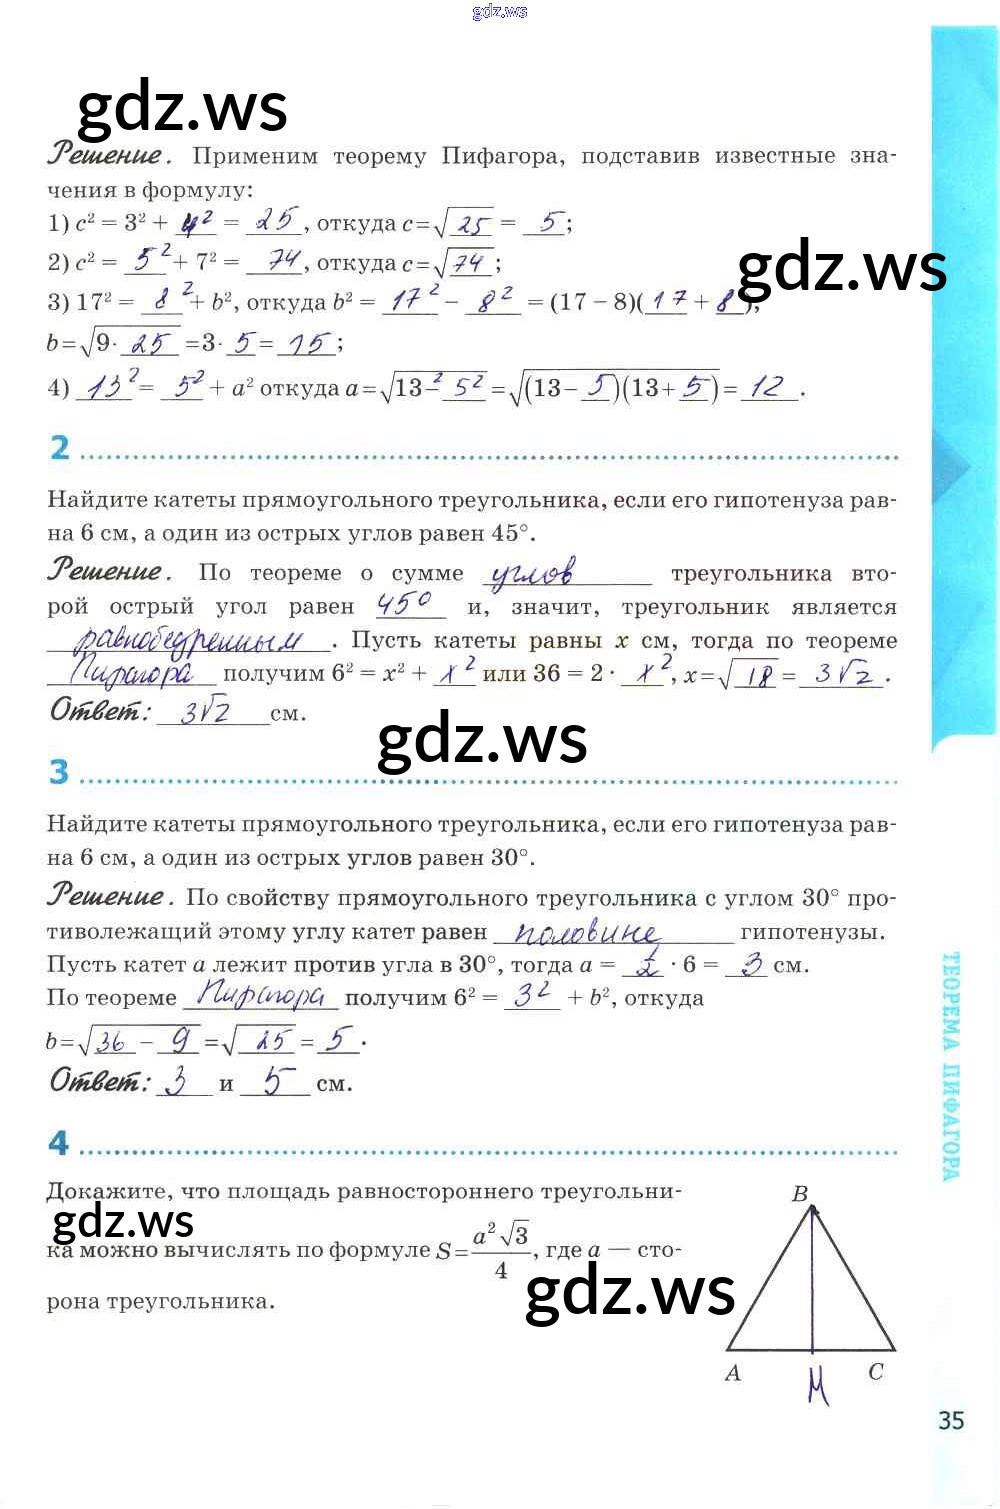 gdz.ws
gdz.ws
Решение. Применим теорему Пифагора, подставив известные зна-
чения в формулу:
1) c² = 3² + 4² = 25, откуда c = √25 = 5;
2) c² = 5² + 7² = 74, откуда c = √74;
gdz.ws
3) 17² = 8² + b², откуда b² = 17² − 8² = (17 − 8)(17 + 8),
b = √9 · 25 = 3 · 5 = 15;
4) 13² = 5² + a² откуда a = √13² − 5² = √(13 − 5)(13 + 5) = 12.
2
Найдите катеты прямоугольного треугольника, если его гипотенуза рав-
на 6 см, а один из острых углов равен 45°.
Решение. По теореме о сумме углов треугольника вто-
рой острый угол равен 45° и, значит, треугольник является
равнобедренным. Пусть катеты равны x см, тогда по теореме
Пифагора получим 6² = x² + x² или 36 = 2 · x², x = √18 = 3√2.
Ответ: 3√2 см.
gdz.ws
3
Найдите катеты прямоугольного треугольника, если его гипотенуза рав-
на 6 см, а один из острых углов равен 30°.
Решение. По свойству прямоугольного треугольника с углом 30° про-
тиволежащий этому углу катет равен половине гипотенузы.
Пусть катет a лежит против угла в 30°, тогда a = 1/2 · 6 = 3 см.
По теореме Пифагора получим 6² = 3² + b², откуда
b = √36 − 9 = √25 = 5.
Ответ: 3 и 5 см.
4
Докажите, что площадь равностороннего треугольни-
gdz.ws
ка можно вычислять по формуле S = a²√3/4, где a — сто-
gdz.ws
рона треугольника.
B
A
M
C
ТЕОРЕМА ПИФАГОРА
35